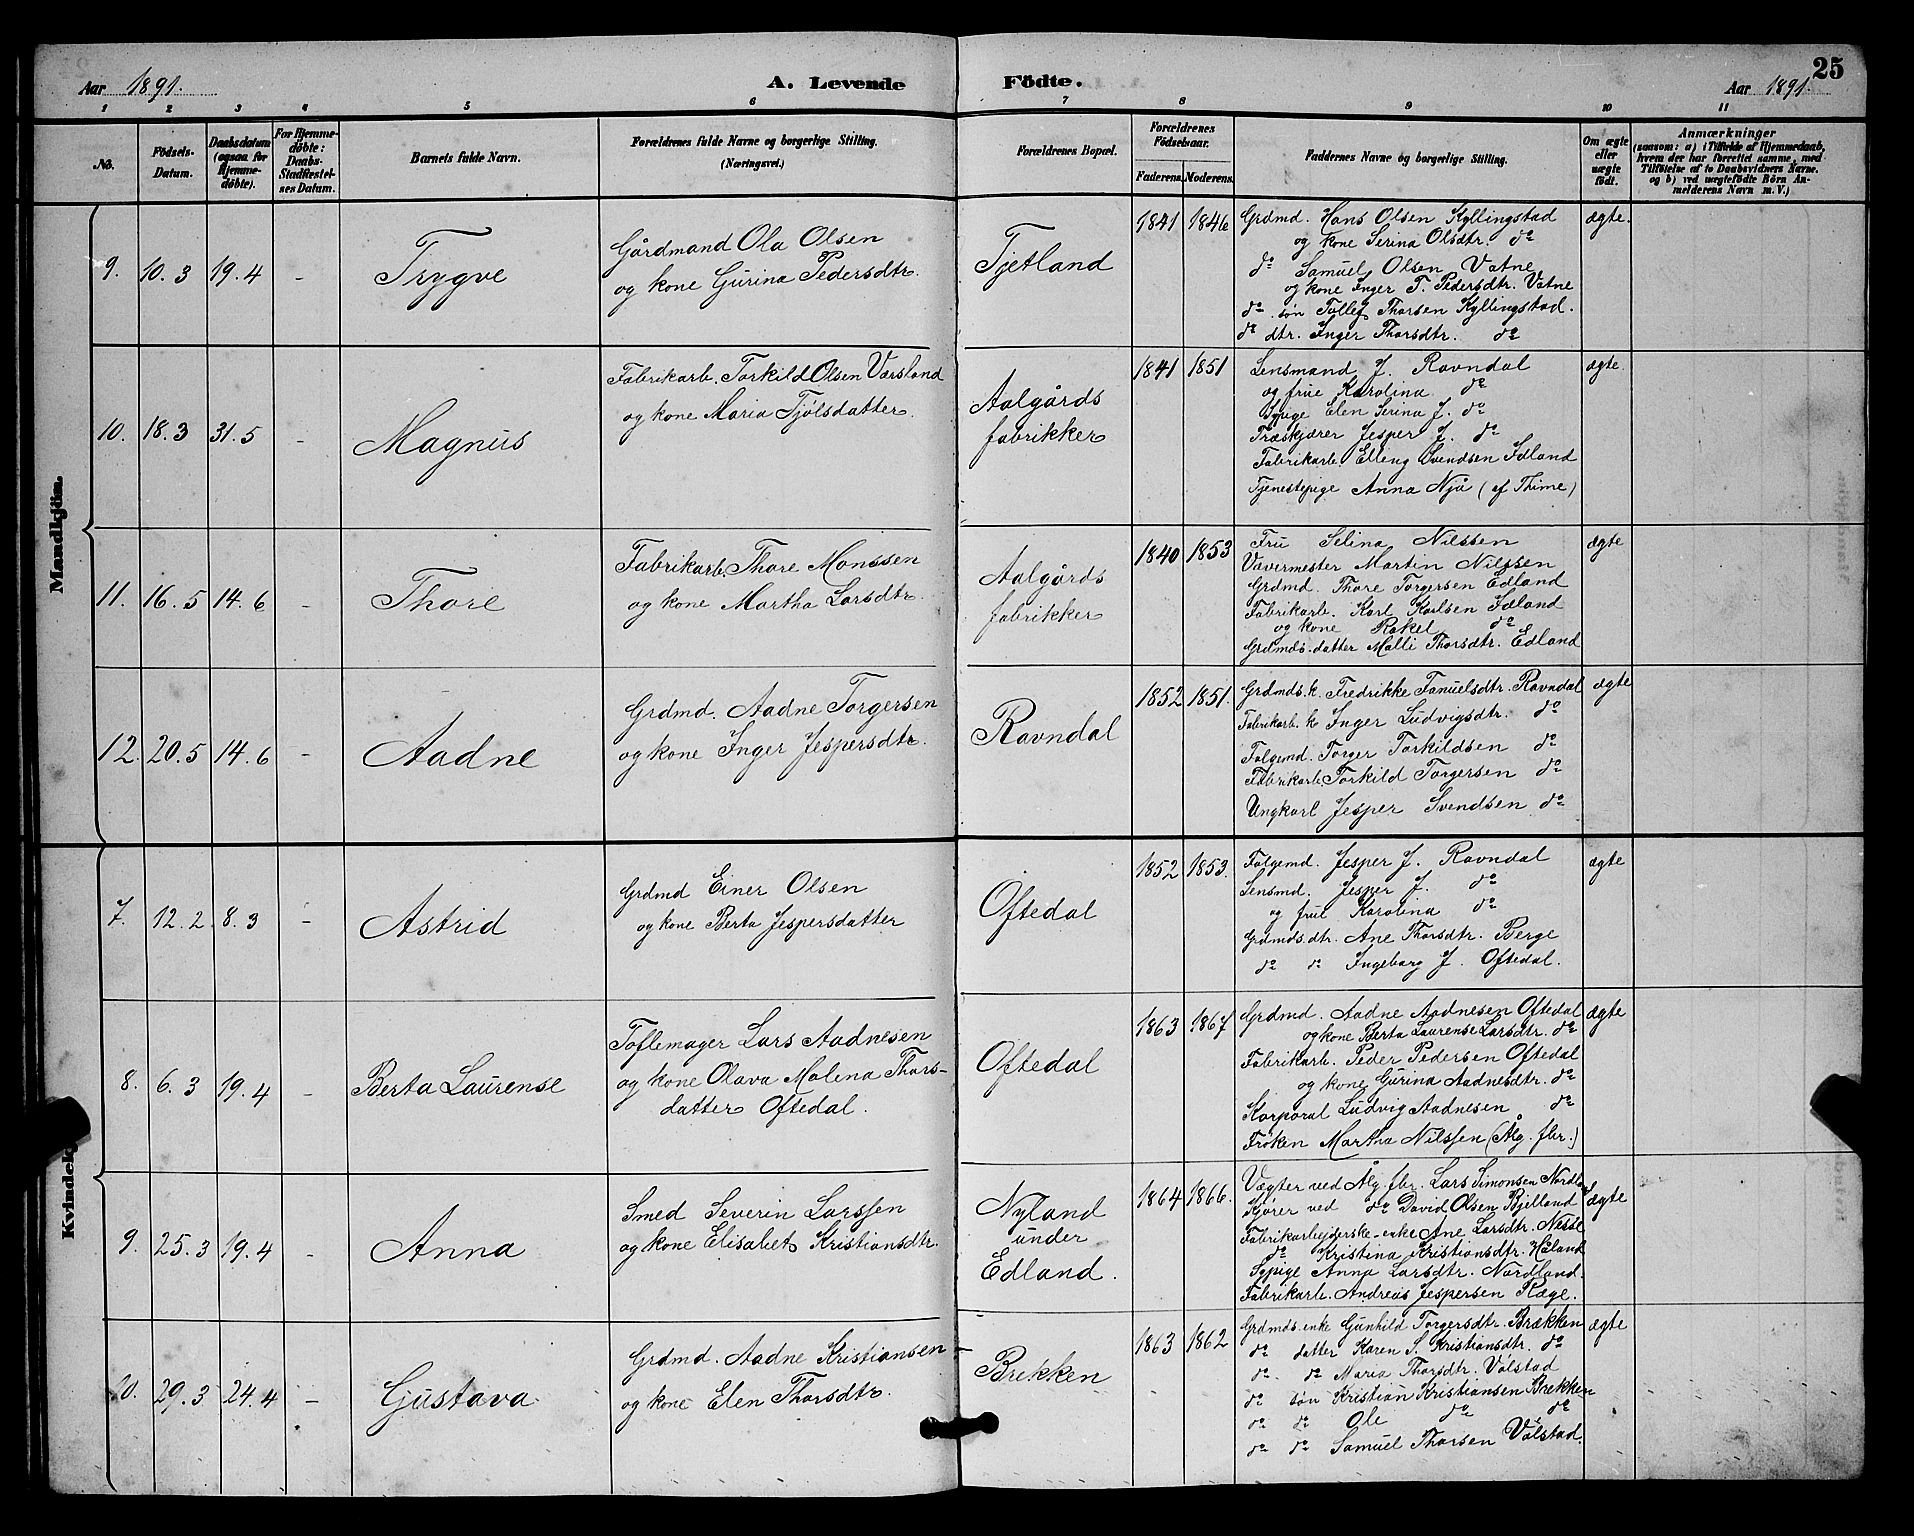 Aar 1891. A. Levende
1 2 3 4 5 6
No. Födsels-Datum. Daabsdatum (ogsaa for Hjemmedöbte). For Hjemmedöbte: Daabs-Stadfæstelses Datum. Barnets fulde Navn. Forældrenes fulde Navne og borgerlige Stilling. (Næringsvei.)
Mandkjön.
9. 10.3 19.4 - Trygve
Gårdmand Ola Olsen
og kone Gurina Pedersdtr.
10. 18.3 31.5 - Magnus
Fabrikarb. Torkild Olsen Varsland
og kone Maria Tjølsdatter.
11. 16.5 14.6 - Thore
Fabrikarb. Thore Monssen
og kone Martha Larsdtr.
12. 20.5 14.6 - Aadne
Grdmd. Aadne Torgersen
og kone Inger Jespersdtr.
Kvindek
7. 12.2 8.3 - Astrid
Grdmd Einer Olsen
og kone Berta Jespersdatter
8. 6.3 19.4 - Berta Laurense
Toflemager Lars Aadnesen
og kone Olava Malena Thors-
datter Oftedal.
9. 25.3 19.4 - Anna
Smed Severin Larssen
og kone Elisabet Kristiansdtr.
10. 29.3 24.4 - Gustava
Grdmd. Aadne Kristiansen
og kone Elen Thorsdtr.
Födte. Aar 1891. 25
7 8 9 10 11
Forældrenes Bopæl. Forældrenes Födselsaar. Faderens. Moderens. Faddernes Navne og borgerlige Stilling. Om ægte eller uægte födt. Anmærkninger
(saasom: a) i Tilfælde af Hjemmedaab, hvem der har forrettet samme, med Tilföielse af to Daabsvidners Navne, og b) ved uægtefödte Börn Anmelderens Navn m. V.)
Tjetland 1841 1846 ægte.
Grdmd. Hans Olsen Kyllingstad
og kone Serina Olsdtr. do
do Samuel Olsen Vatne
og kone Inger T. Pedersdtr. Vatne
do søn Tollef Thorsen Kyllingstad.
do dtr. Inger Thorsdtr. do
Aalgårds
fabrikker 1841 1851 ægte.
Lensmand J. Ravndal
og frue Karolina do
Sypige Elen Serina J. do
Træskjærer Jesper J. do
Fabrikarb. Elling Svendsen Fdland
Tjenestepige Anna Njå (af Thime)
Aalgårds
fabrikker 1840 1853 ægte
Fru Selina Nilssen
Vævermester Martin Nilssen
Grdmd. Thore Torgersen Edland
Fabrikarb. Karl Karlsen
og kone Rakel do
Grdmds.datter Malli Thorsdtr. Edland
Ravndal 1852 1851. ægte
Grdmds.k. Fredrikke Tanuelsdtr. Ravndal
Fabrikarb. k Inger Ludvigsdtr. do
Folgemd. Torger Torkildsen do
Fabrikarb. Torkild Torgersen do
Ungkarl Jesper Svendsen do
Oftedal 1852 1853. ægte
Folgemd. Jesper J. Ravndal
Lensmd. Jesper J. do
og frue Karolina do
Grdmds.dtr. Ane Thorsdtr. Berge
do do Ingeborg J. Oftedal.
Oftedal 1863 1867 ægte
Grdmd. Aadne Aadnesen Oftedal
og kone Berta Laurense Larsdtr. do
Fabrikarb. Peder Pedersen Oftedal
og kone Gurina Aadnesdtr. do
Korporal Ludvig Aadnesen do
Frøken Martha Nilssen (Ålg. fbr.)
Nyland
under
Edland. 1864 1866. ægte
Vægter ved Ålg. fbr. Lars Simonsen
Kjører ved do David Olsen Bjelland
Fabrikarbejderske-enke Ane Larsdtr. Nesse
do Kristina Kristiansdtr. Håland
Sypige Anna Larsdtr. Nordland.
Fabrikarb. Andreas Jespersen Kæge.
Brekken 1863 1862 ægte
Grdmds. enke Gunhild Torgersdtr. Brækken
do datter Karen S. Kristiansdtr. do
do. do Maria Thorsdtr. Volstad
do søn Kristian Kristiansen Brekken
do do Ole do do
do do Samuel Thorsen Vølstad.